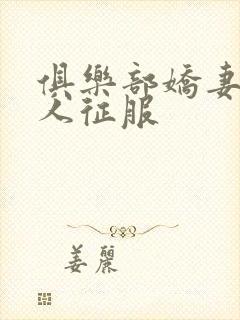 俱樂部嬌妻
人征服
姜麗